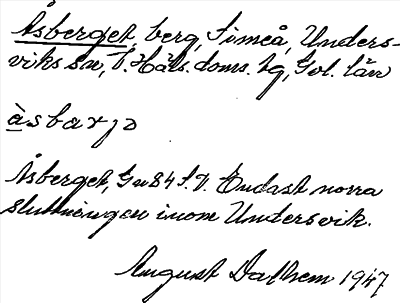 Åsberget, berg, Simeå, Unders-
viks sn, V. Häls. doms. hg, Gvl. län
àsbarjə
Åsberget, Gu 84 S.V. Endast norra
sluttningen inom Undersvik.
August Dalhem 1947